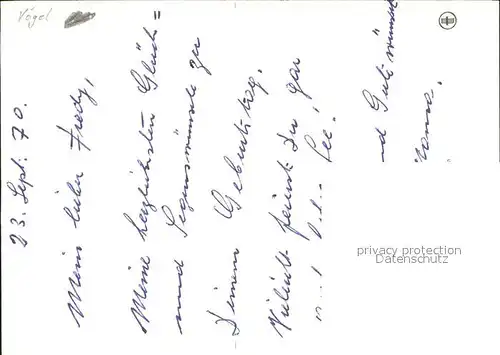 Vögel
23. Sept. 70.
Mein lieber Fredy,
Meine herzlichsten Glück=
und Segenswünsche zu
Deinem Geburtstag.
Vielleicht feierst Du gar
See.
Gute wünsche
privacy protection
Datenschutz